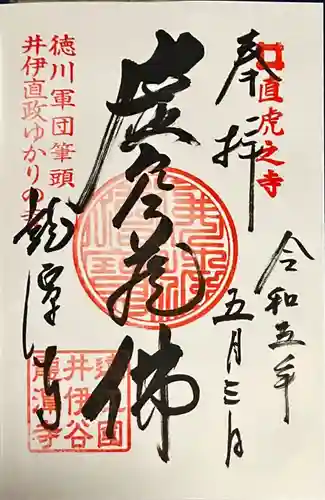 奉拝
直虎之寺
令和五年
五月三日
虚空蔵佛
徳川軍団筆頭
井伊直政ゆかりの寺
龍潭寺
遠江國
井伊谷
龍潭寺